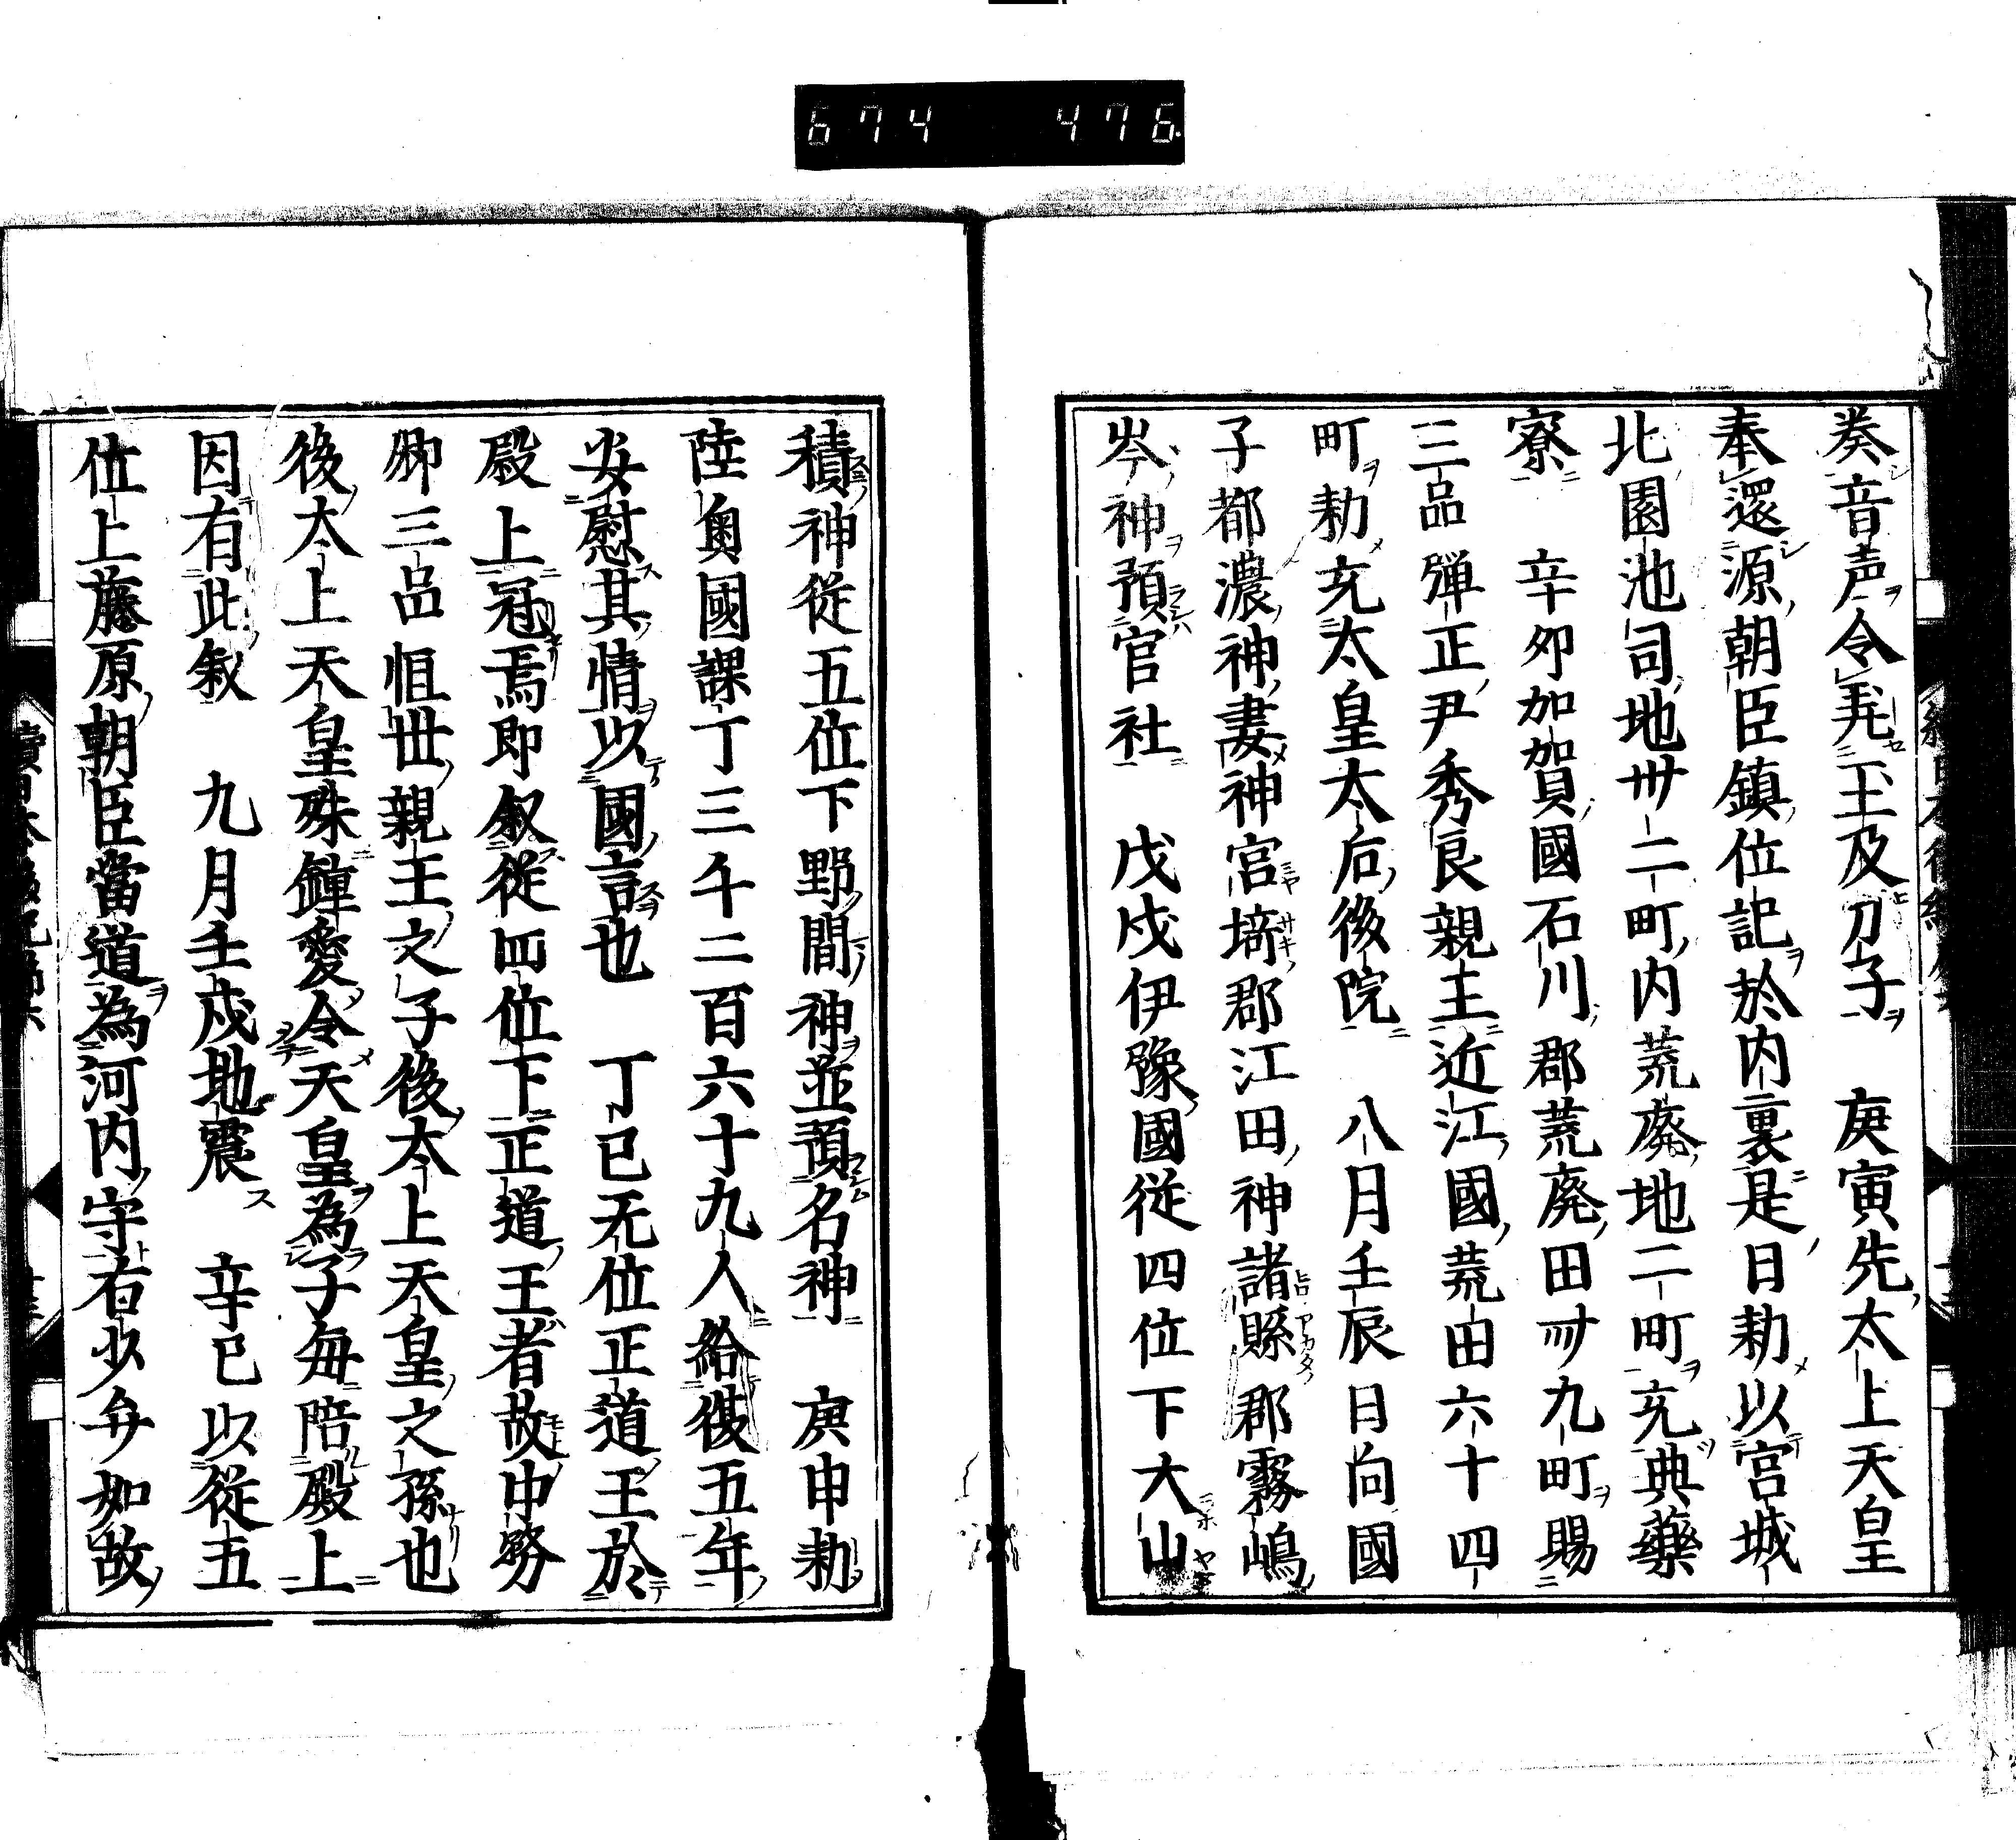 674 476
奏音声令𦒳王及刀子 庚寅先太上天皇
奉還源朝臣鎮位記於内裏是日勅以宮城
北園池司地卅二町内荒廃地二町充典藥
寮 辛卯加賀國石川郡荒廃田卌九町賜
三品彈正尹秀良親王近江國荒田六十四
町勅充太皇太后後院 八月壬辰日向國
子都濃神妻神宮埼郡江田神諸縣郡霧嶋
岑神預官社 戊戌伊豫國從四位下大山
積神從五位下野間神並預名神 庚申勅
陸奧國課丁三千二百六十九人給復五年
安慰其情以國言也 丁巳无位正道王於
殿上冠焉即叙從四位下正道王者故中務
卿三品恒世親王之子後太上天皇之孫也
後太上天皇殊鍾愛令天皇為子每陪殿上
因有此叙 九月壬戌地震 辛巳以從五
位上藤原朝臣當道為河内守右少弁如故